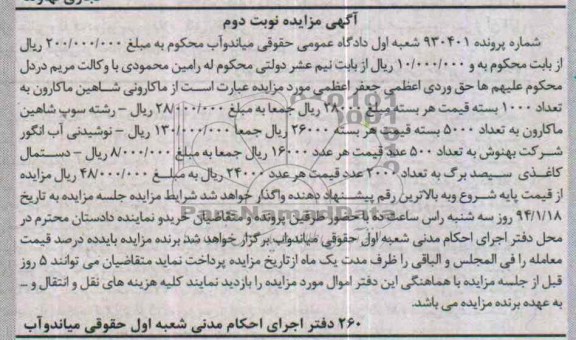 آگهی مزایده نوبت دوم
شماره پرونده ۹۳۰۴۰۱ شعبه اول دادگاه عمومی حقوقی میاندوآب محکوم به مبلغ ۲۰۰/۰۰۰/۰۰۰ ریال
از بابت محکوم به و ۱۰/۰۰۰/۰۰۰ ریال از بابت نیم عشر دولتی محکوم له رامین محمودی با وکالت مریم دردل
محکوم علیهم ها حق وردی اعظمی جعفر اعظمی مورد مزایده عبارت است از ماکارونی شاهین ماکارون به
تعداد ۱۰۰۰ بسته قیمت هر بسته مبلغ ۲۸۰۰۰ ریال جمعا به مبلغ ۲۸/۰۰۰/۰۰۰ ریال – رشته سوپ شاهین
ماکارون به تعداد ۵۰۰۰ بسته قیمت هر بسته ۲۶۰۰۰ ریال جمعا ۱۳۰/۰۰۰/۰۰۰ ریال – نوشیدنی آب انگور
شرکت بهنوش به تعداد ۵۰۰ عدد قیمت هر عدد ۱۶۰۰۰ ریال جمعا به مبلغ ۸/۰۰۰/۰۰۰ ریال – دستمال
کاغذی سیصد برگ به تعداد ۲۰۰۰ عدد قیمت هر عدد ۲۴۰۰۰ ریال به مبلغ ۴۸/۰۰۰/۰۰۰ ریال مزایده
از قیمت پایه شروع وبه بالاترین رقم پیشنهاد دهنده واگذار خواهد شد شرایط مزایده جلسه مزایده به تاریخ
۹۴/۱/۱۸ روز سه شنبه راس ساعت با حضور طرفین پرونده و متقاضیان خرید و نماینده دادستان محترم در
محل دفتر اجرای احکام مدنی شعبه اول حقوقی میاندواب برگزار خواهد شد برنده مزایده بایدده درصد قیمت
معامله را فی المجلس و الباقی را ظرف مدت یک ماه ازتاریخ مزایده پرداخت نماید متقاضیان می توانند ۵ روز
قبل از جلسه مزایده با هماهنگی این دفتر اموال مورد مزایده را بازدید نمایند کلیه هزینه های نقل و انتقال و –
به عهده برنده مزایده می باشد.
۲۶۰ دفتر اجرای احکام مدنی شعبه اول حقوقی میاندوآب